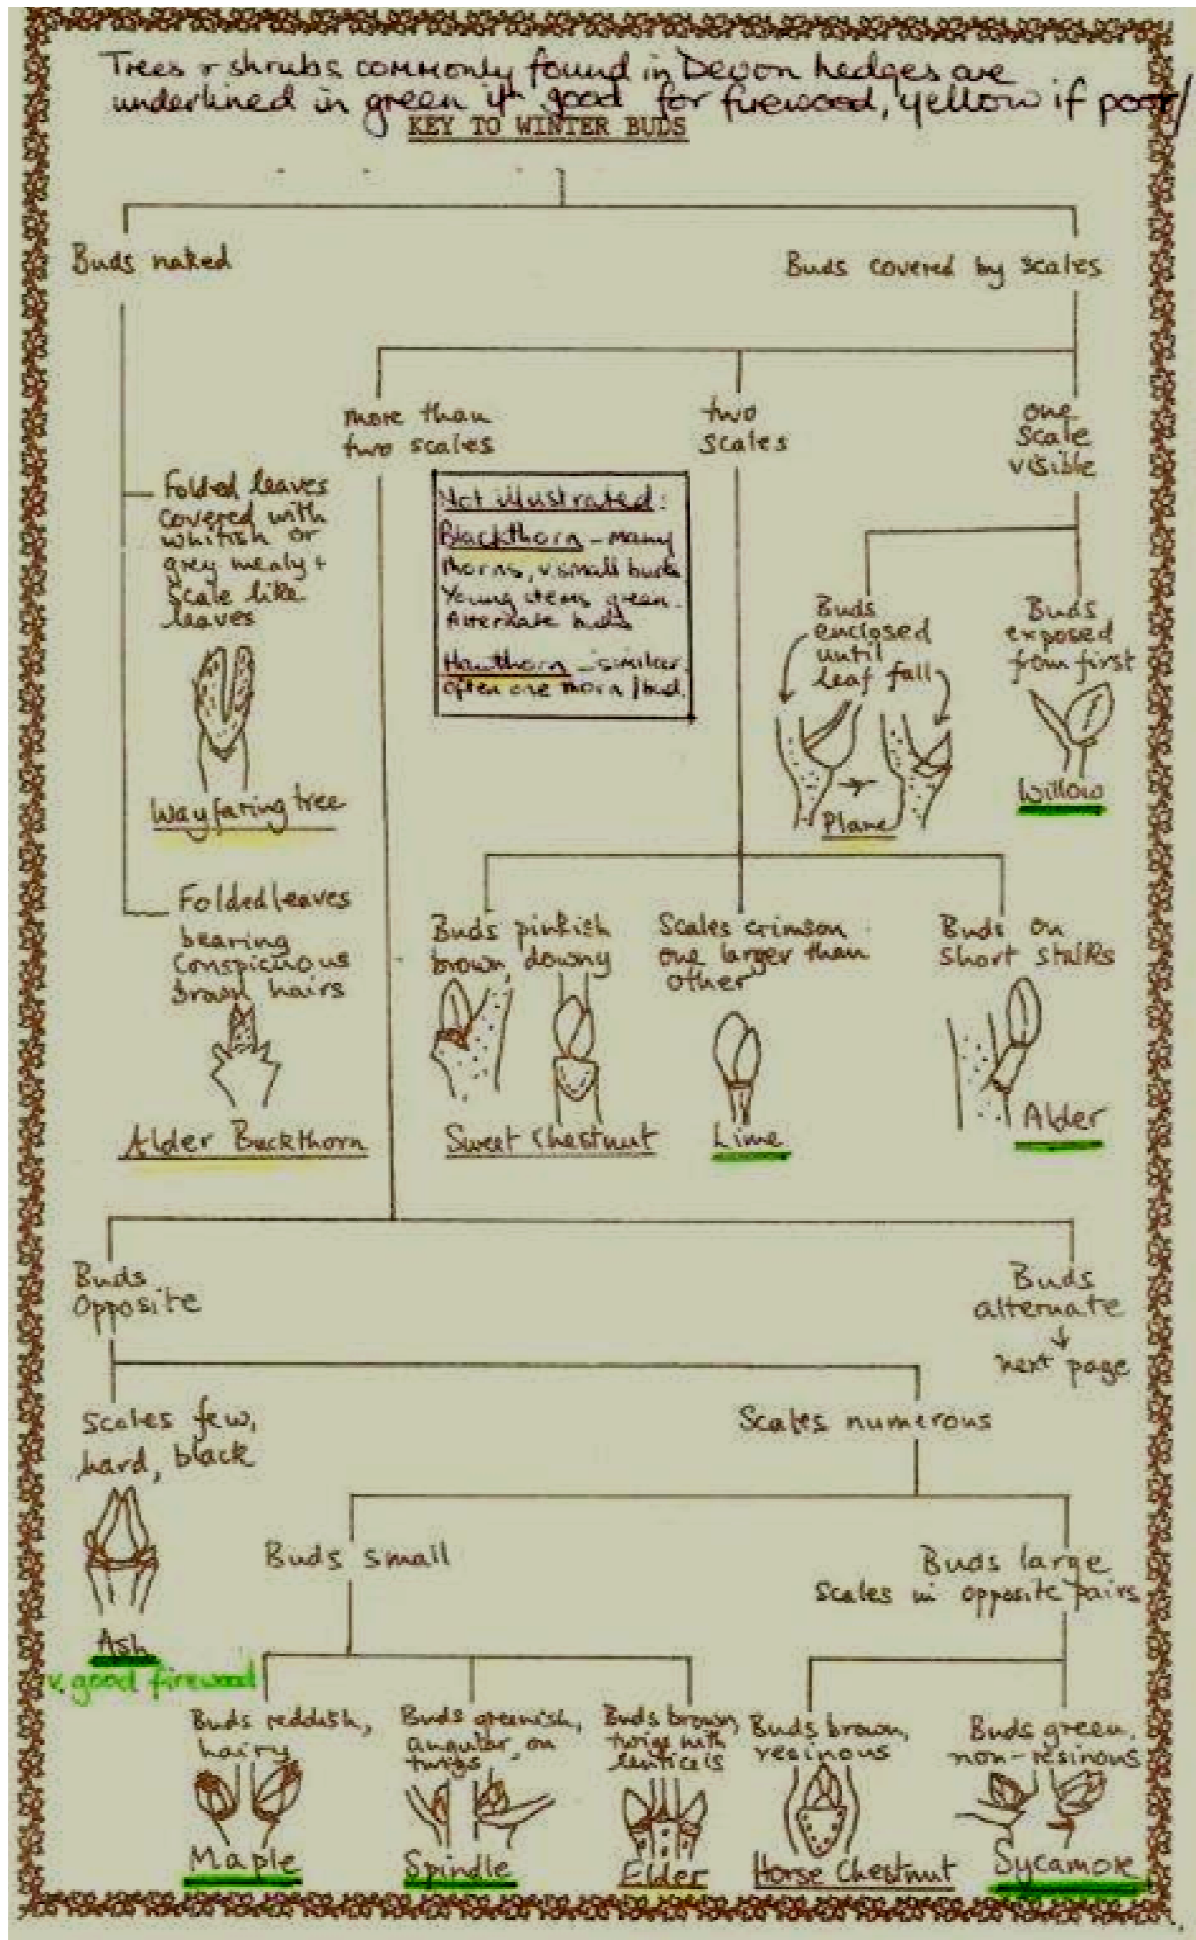 Trees & shrubs commonly found in Devon hedges are
underlined in green if good for firewood, yellow if poor/
KEY TO WINTER BUDS
Buds naked
Buds covered by scales
more than
two scales
two
scales
one
scale
visible
Folded leaves
covered with
whitish or
grey mealy +
scale like
leaves
Wayfaring tree
Not illustrated:
Blackthorn - Many
thorns, v. small buds
Young stems green.
Alternate buds
Hawthorn - similar.
Often one thorn / bud.
Buds
enclosed
until
leaf fall
Plane
Buds
exposed
from first
Willow
Folded leaves
bearing
conspicuous
brown hairs
Alder Buckthorn
Buds pinkish
brown, downy
Sweet Chestnut
Scales crimson
one larger than
other
Lime
Buds on
short stalks
Alder
Buds
Opposite
Buds
alternate
next page
Scales few,
hard, black
Ash
v. good firewood
Scales numerous
Buds small
Buds large
Scales in opposite pairs
Buds reddish,
hairy
Maple
Buds greenish,
angular on
twigs
Spindle
Buds brown,
twigs with
lenticels
Elder
Buds brown,
resinous
Horse Chestnut
Buds green,
non-resinous
Sycamore